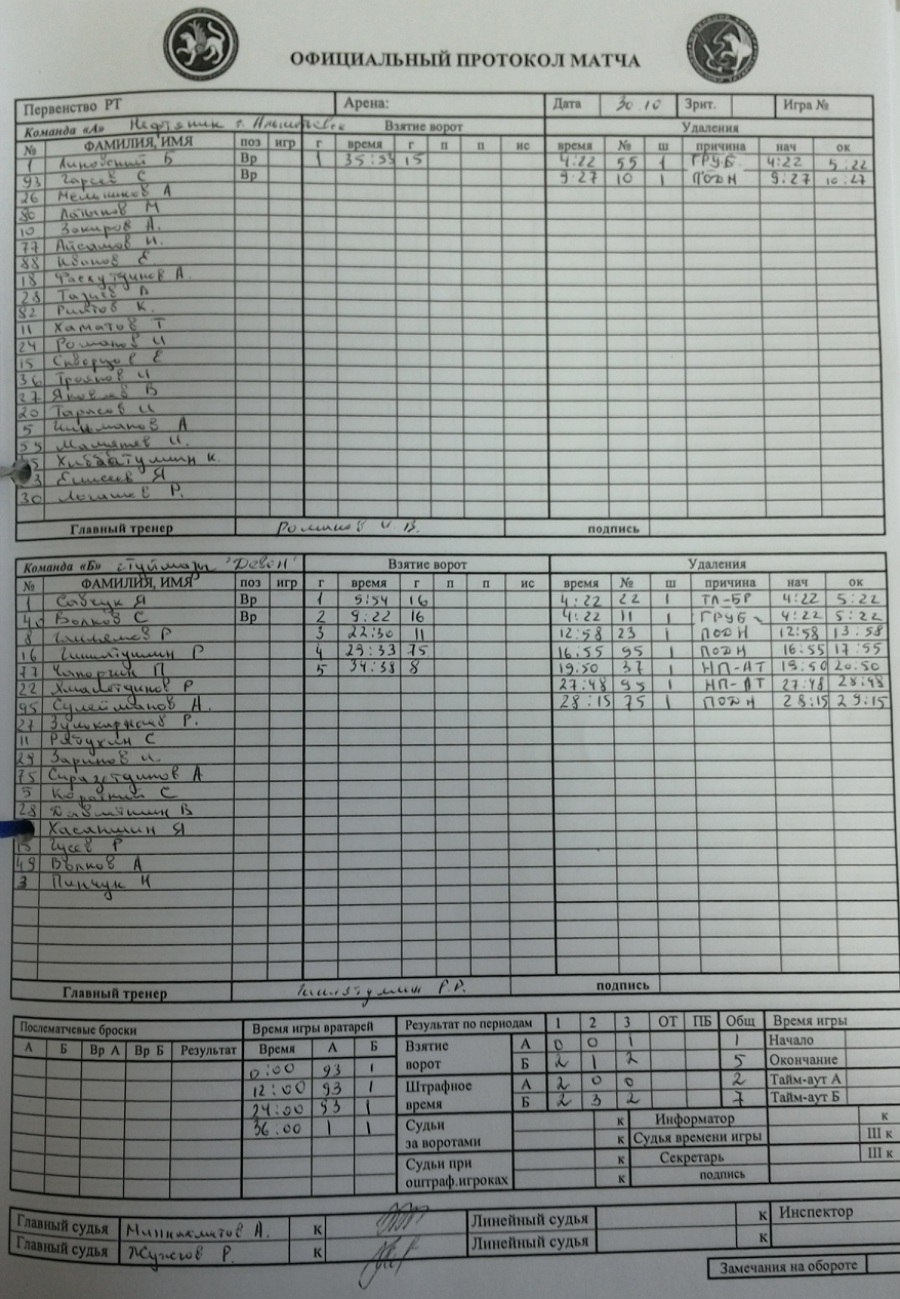 ОФИЦИАЛЬНЫЙ ПРОТОКОЛ МАТЧА
Первенство РТ Арена: Дата 30.10 Зрит. Игра №
Команда «А» Нефтяник г. Альметьевск Взятие ворот Удаления
№ ФАМИЛИЯ, ИМЯ поз игр г время г п п ис время № ш причина нач ок
1 Б Вр 1 35:33 15 4:22 55 1 ГРУБ. 4:22 5:22
93 Гареев С Вр 9:27 10 1 ПОДН 9:27 10:27
26 Мельников А
80 Латыпов М
10 Закиров А.
77 И.
88 Иванов Е.
18 Фасхутдинов А.
28 Тазиев В
82 К.
11 Хаматов Т
24 Романов И
15 Скворцов Е
36 Троянов И
27 Яковлев В
20 Тарасов И
5 А
55 И.
Хибатуллин К.
Елисеев Я
30 Логинов Р.
Главный тренер Романов И. В. подпись
Команда «Б» Туймазы "Девон" Взятие ворот Удаления
№ ФАМИЛИЯ, ИМЯ поз игр г время г п п ис время № ш причина нач ок
1 Савчук Я Вр 1 5:54 16 4:22 22 1 ТЛ-БР 4:22 5:22
40 Волков С Вр 2 9:22 16 4:22 11 1 ГРУБ 4:22 5:22
8 Р 3 22:30 11 12:58 23 1 ПОДН 12:58 13:58
16 Гиниятуллин Р 4 29:33 75 16:55 95 1 ПОДН 16:55 17:55
77 П 5 34:38 8 19.50 37 1 НП-АТ 19:50 20:50
22 Р 27:48 95 1 НП-АТ 27:48 28:48
95 Сулейманов А. 28:15 75 1 ПОДН 28:15 29:15
27 Р.
11 С
29 Зарипов И.
75 Сиразетдинов А
5 Короткий С
28 В
Хасаншин Я
15 Гусев Р
49 Волков А
3 Пинчук Н
Главный тренер Р.Р. подпись
Послематчевые броски Время игры вратарей Результат по периодам 1 2 3 ОТ ПБ Общ Время игры
А Б Вр А Вр Б Результат Время А Б Взятие ворот А 0 0 1 1 Начало
0:00 93 1 Б 2 1 2 5 Окончание
12:00 93 1 Штрафное время А 2 0 0 2 Тайм-аут А
24:00 93 1 Б 2 3 2 7 Тайм-аут Б
36.00 1 1 Судьи за воротами к Информатор к
к Судья времени игры Ш к
Судьи при оштраф.игроках к Секретарь Ш к
к подпись
Главный судья Миннахметов А. к Линейный судья к Инспектор
Главный судья Р. к Линейный судья к
Замечания на обороте